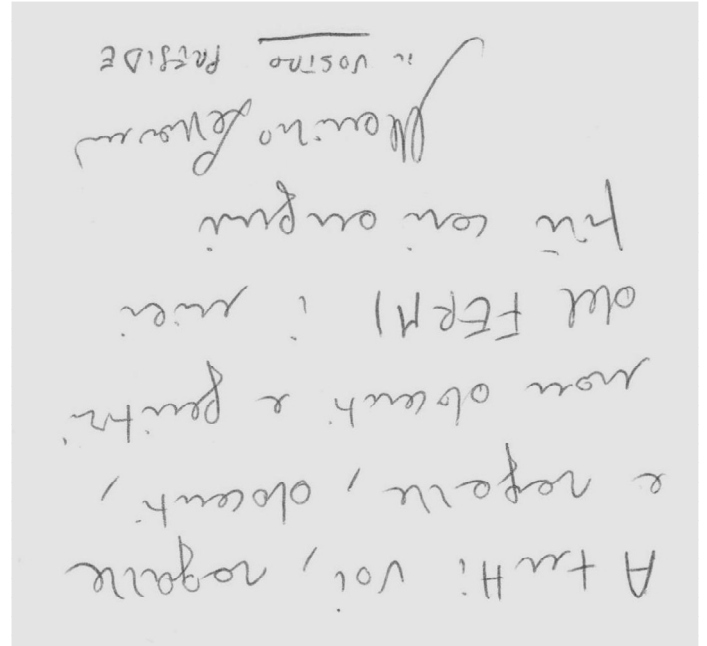 A tutti voi, ragazze
e ragazzi, docenti,
non docenti e genitori
del FERMI i miei
più cari auguri
il VOSTRO PRESIDE